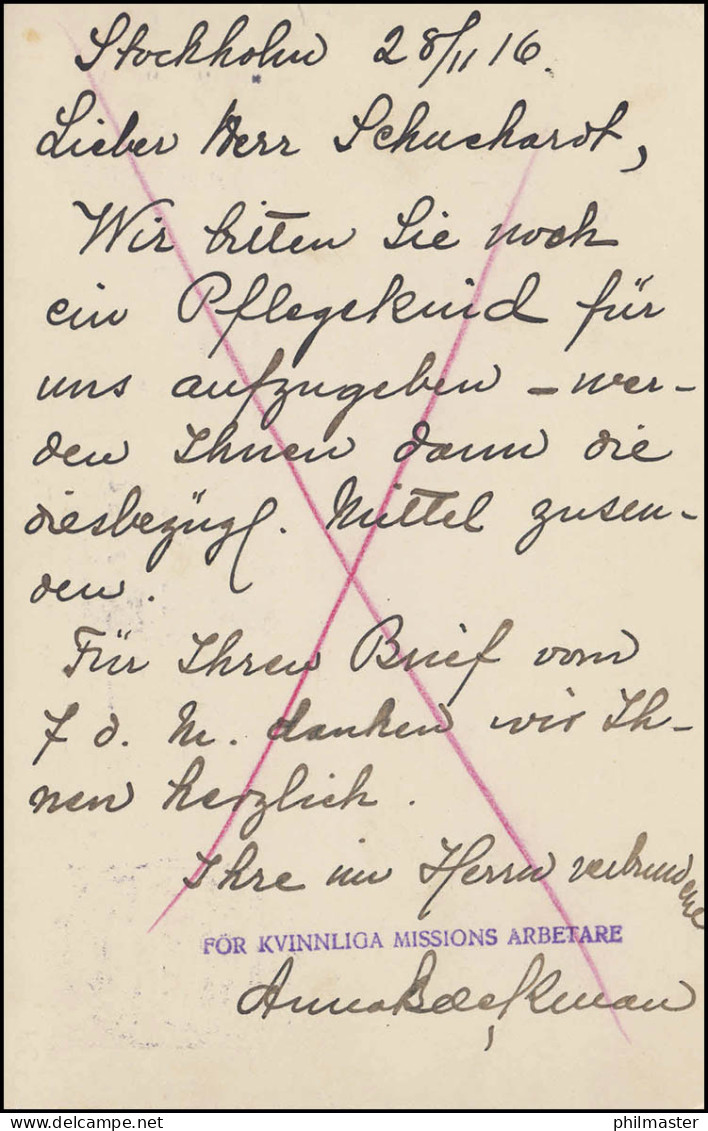 Stockholm 28/11 16.
Lieber Herr Schuchardt,
Wir bitten Sie noch
ein Pflegekind für
uns aufzugeben – wer-
den Ihnen dann die
diesbezügl. Mittel zusen-
den.
Für Ihren Brief vom
7 d. M. danken wir Ih-
nen herzlich.
Ihre im Herrn verbundene
FÖR KVINNLIGA MISSIONS ARBETARE
Anna
philmaster